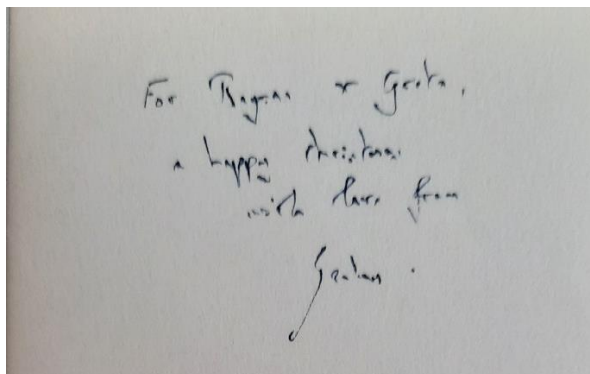 For Ragnar & Greta,
a happy christmas
with love from
Graham.